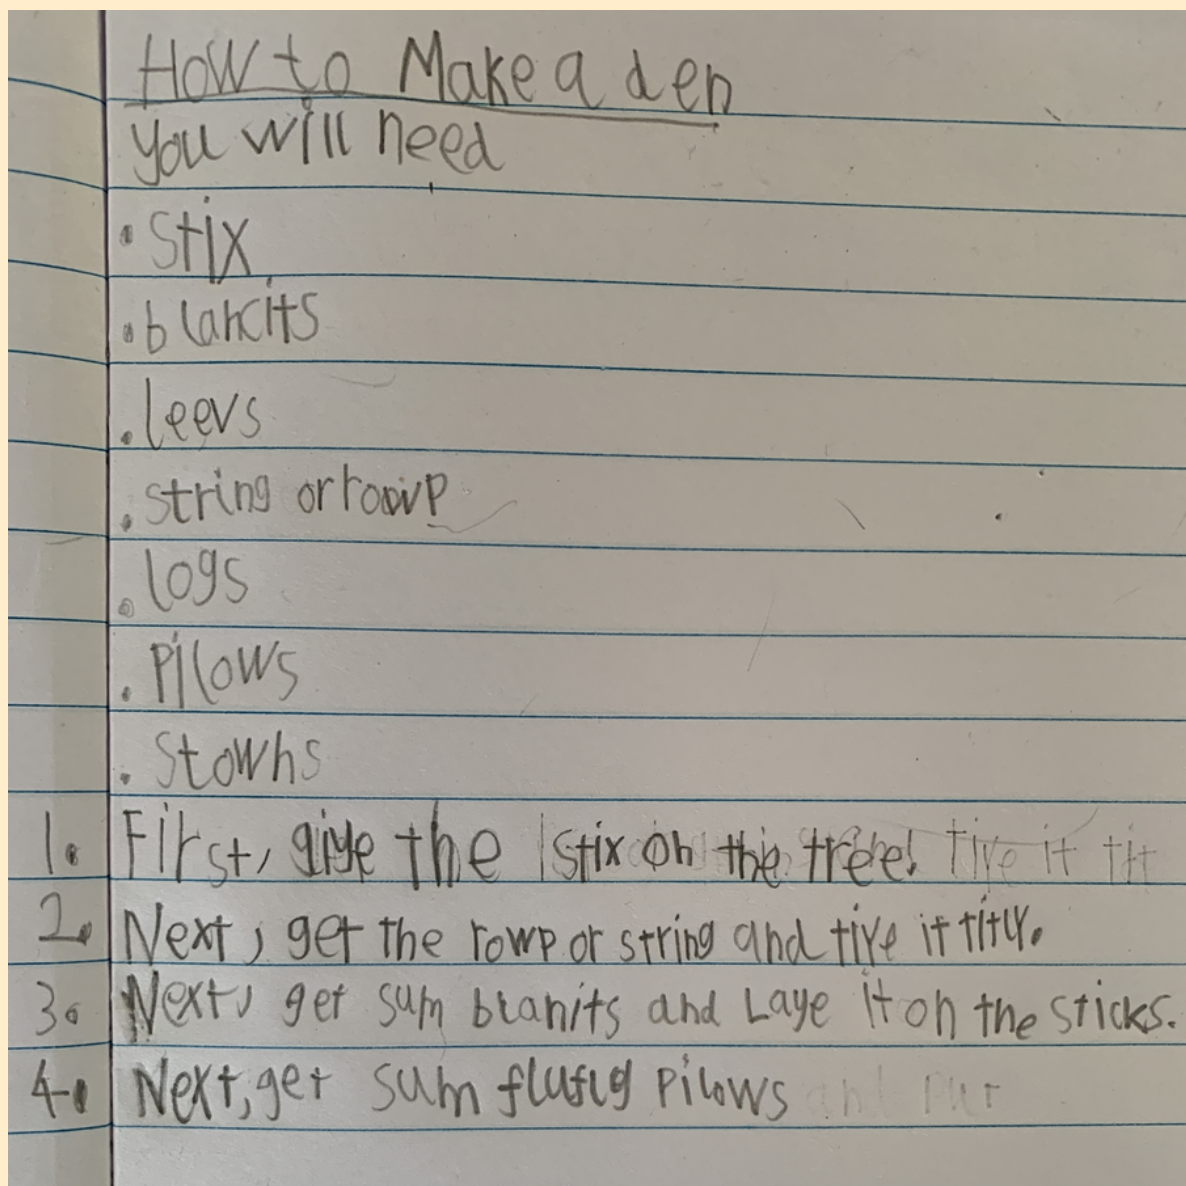 How to Make a den
you will need
• stix
• blancits
• leevs
• string or rowp
• logs
• Pilows
• Stowns
1. First, give the stix on the tree.
2. Next, get the rowp or string and tiye it titly.
3. Next, get sum blanits and Laye it on the sticks.
4. Next, get sum flufiy Pilows